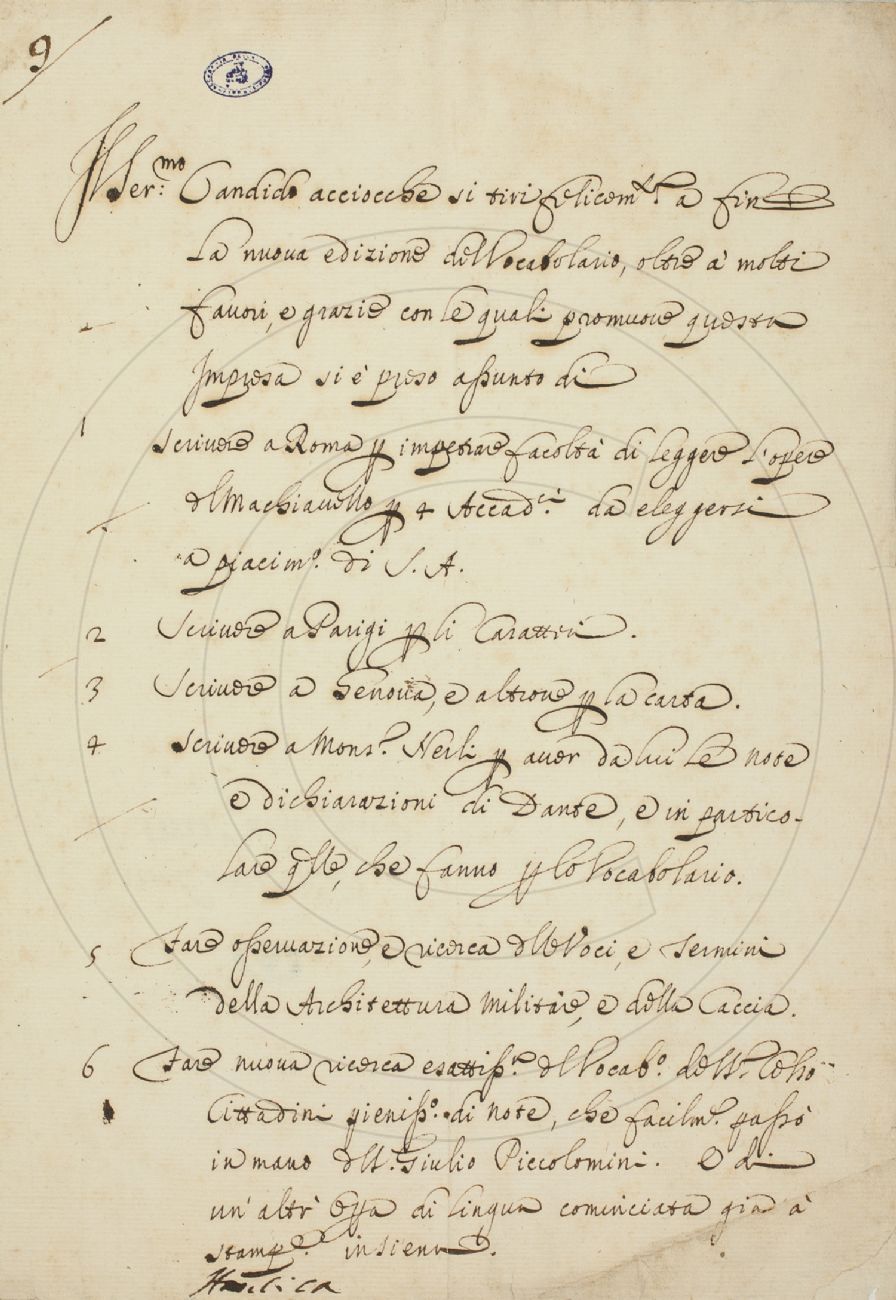 9
Il Ser.mo Candido acciocche si tiri felicem.te a fine
La nuova edizione del Vocabolario, oltre a' molti
favori, e grazie con le quali promuove questa
Impresa si è preso assunto di
1 Scrivere a Roma p impetrare facoltà di leggere l'opere
del Machiavello p 4 Accad.ci da eleggersi
a piacim.o di S. A.
2 Scrivere a Parigi p li Caratteri.
3 Scrivere a Genova, e altrove p la carta.
4 Scrivere a Mons.r Nerli p aver da lui le note
e dichiarazioni di Dante, e in partico-
lare qlle, che fanno p lo Vocabolario.
5 Fare osservazione, e ricerca delle Voci, e Termini
della Architettura militare, e della Caccia.
6 Fare nuova ricerca esattiss.a del Vocab.o del S.r Celso
Cittadini pieniss.o di note, che facilm.e passò
in mano del S.r Giulio Piccolomini. E di
un'altr' opa di lingua cominciata già à
stamp.e insieme.